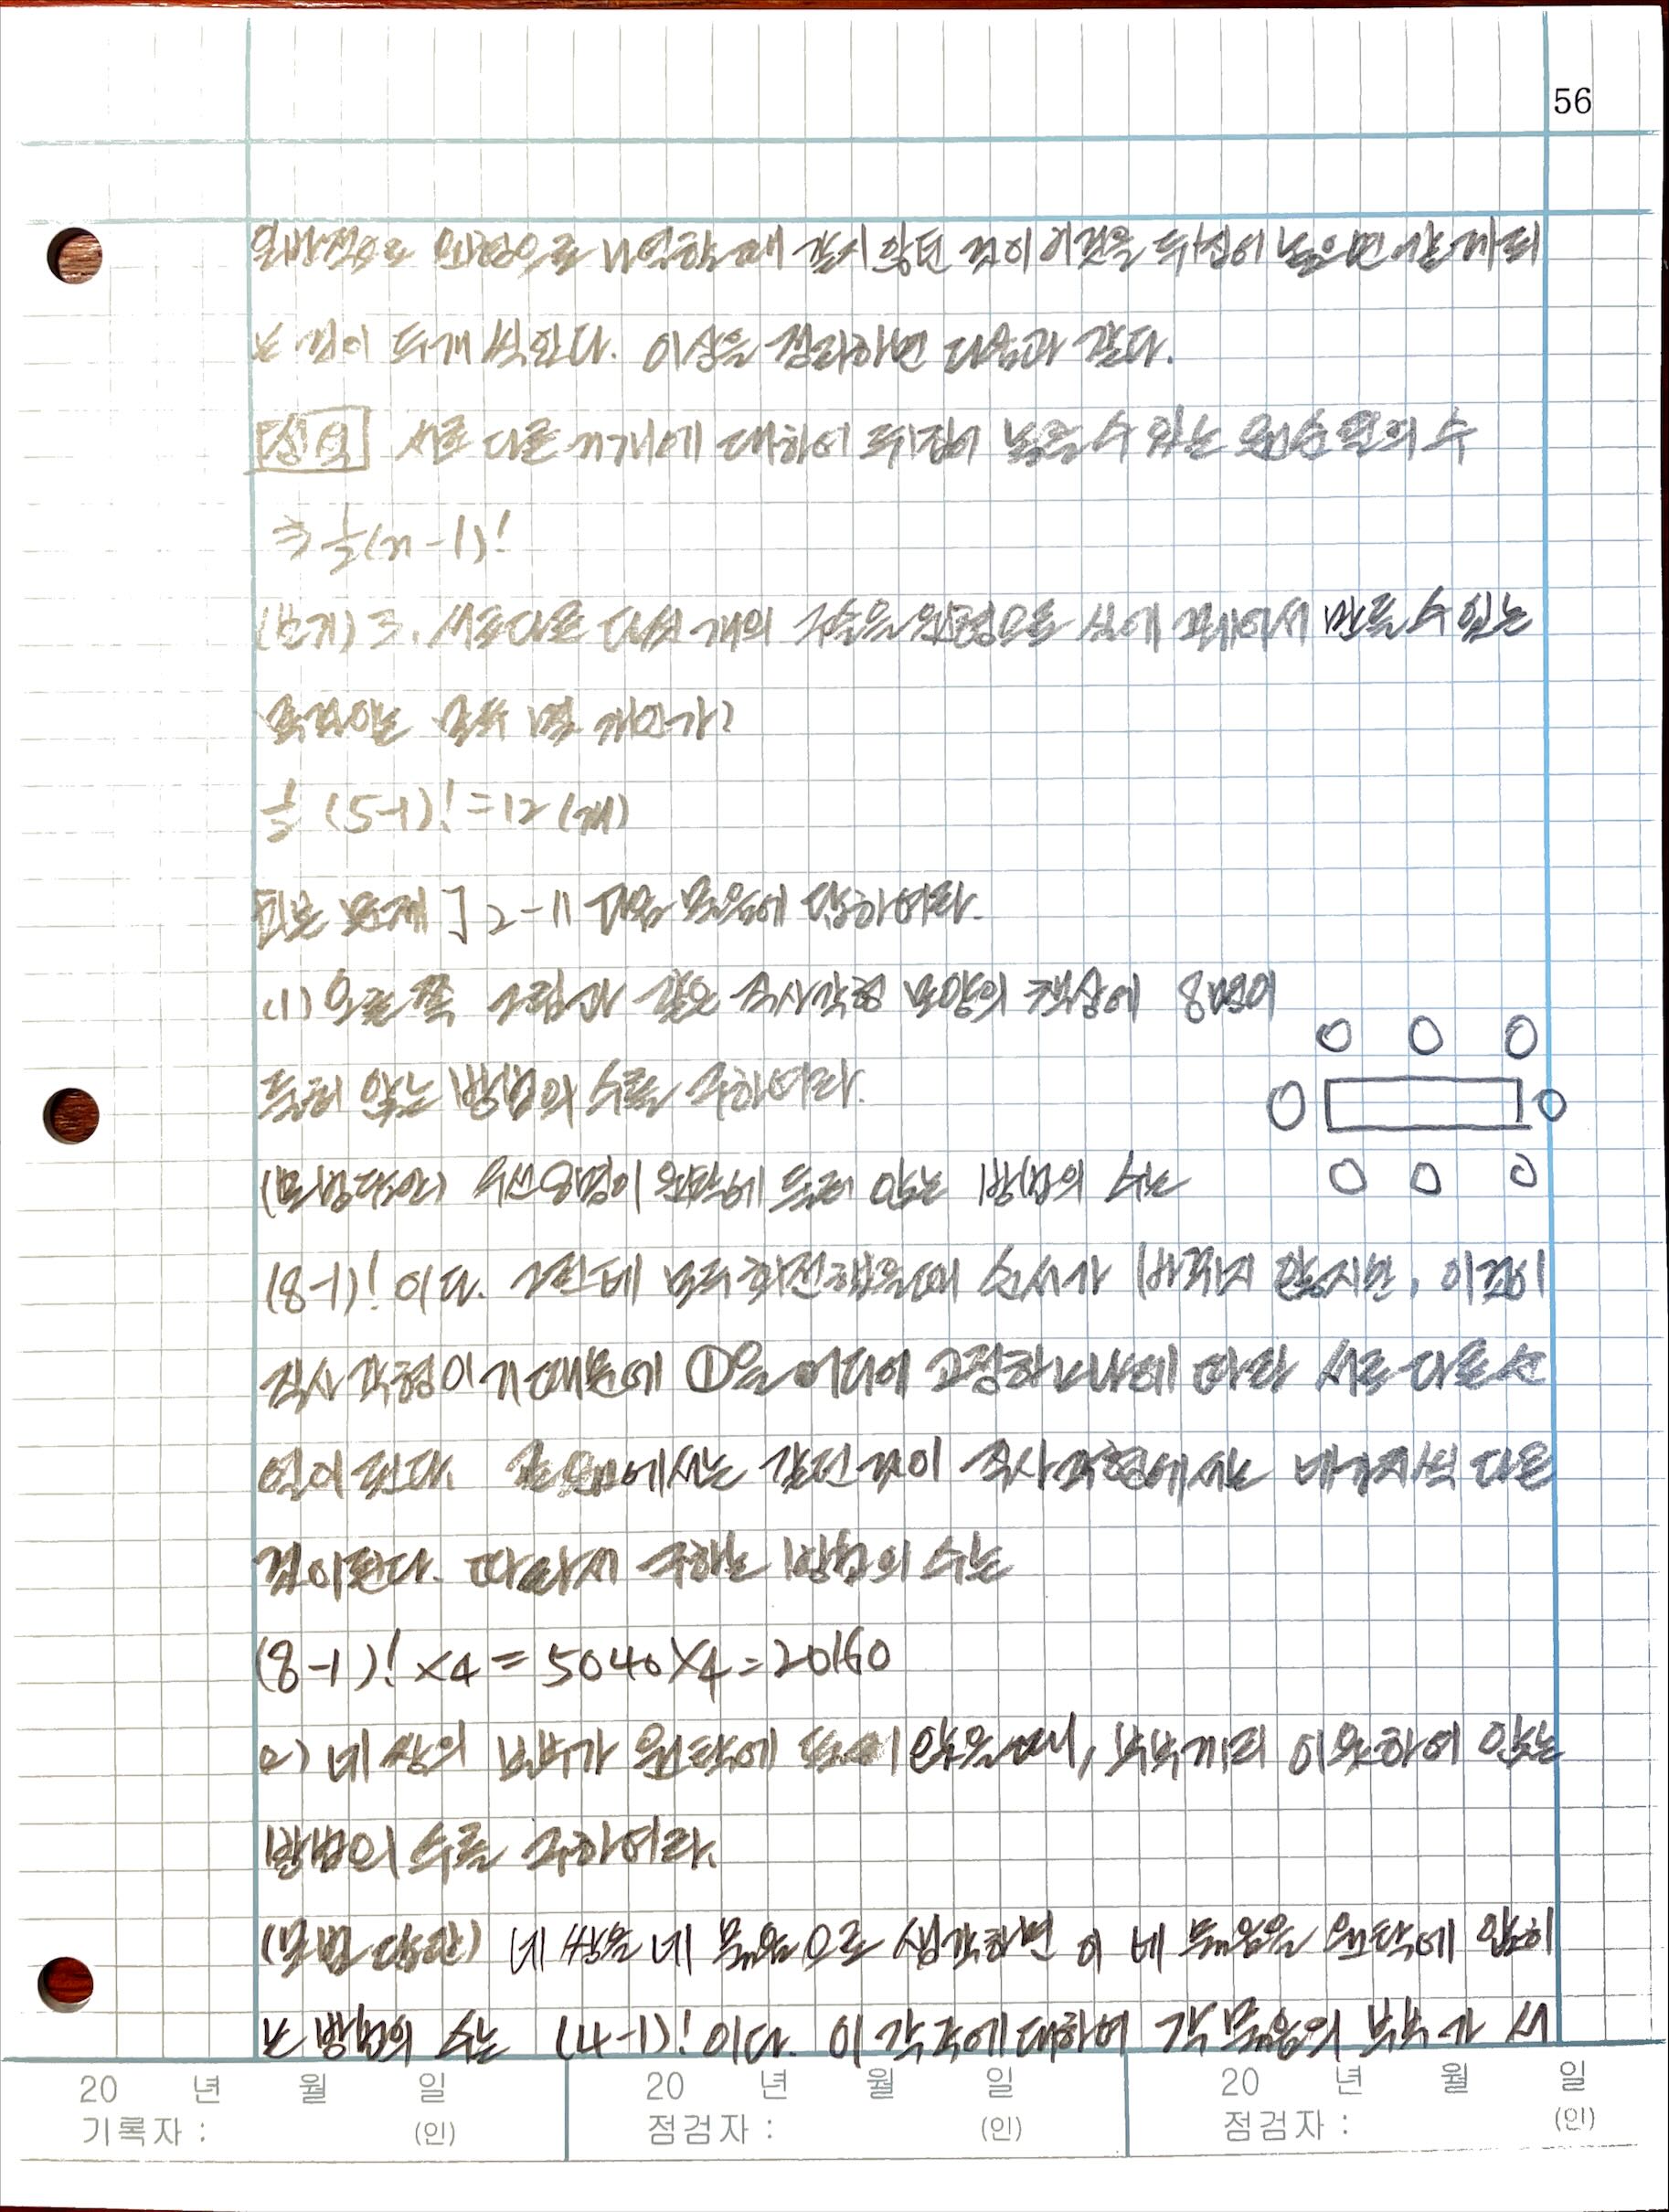 56
일반적으로 원형으로 나열할 때 같지 않던 것이 이것을 뒤집어 놓으면 같게 되
는 것이 두개 씩 있다. 이상을 정리하면 다음과 같다.
서로 다른 n개에 대하여 뒤집어 놓을 수 있는 원순열의 수
⇒ 1/2(n-1)!
(보기) 3. 서로 다른 다섯 개의 구슬을 원형으로 실에 꿰어서 만들 수 있는
목걸이는 모두 몇 개인가?
1/2 (5-1)! = 12 (개)
[기본 문제] 2-11 다음 물음에 답하여라.
(1) 오른쪽 그림과 같은 직사각형 모양의 책상에 8명이
둘러 앉는 방법의 수를 구하여라.
(모범답안) 우선 8명이 원탁에 둘러 앉는 방법의 수는
(8-1)! 이다. 그런데 모두 회전했을 때 순서가 바뀌지 않지만, 이것이
직사각형이기 때문에 ①을 어디에 고정하느냐에 따라 서로 다른 순
열이 된다. 곧 원에서는 같던 것이 직사각형에서는 네가지씩 다른
것이 된다. 따라서 구하는 방법의 수는
(8-1)! ×4 = 5040×4 = 20160
2) 네 쌍의 부부가 원탁에 둘러 앉을 때, 부부끼리 이웃하여 앉는
방법의 수를 구하여라.
(모범 답안) 네 쌍을 네 묶음으로 생각하면 이 네 묶음을 원탁에 앉히
는 방법의 수는 (4-1)! 이다. 이 각각에 대하여 각 묶음의 부부가 서
20 년 월 일 20 년 월 일 20 년 월 일
기록자 : (인) 점검자 : (인) 점검자 : (인)